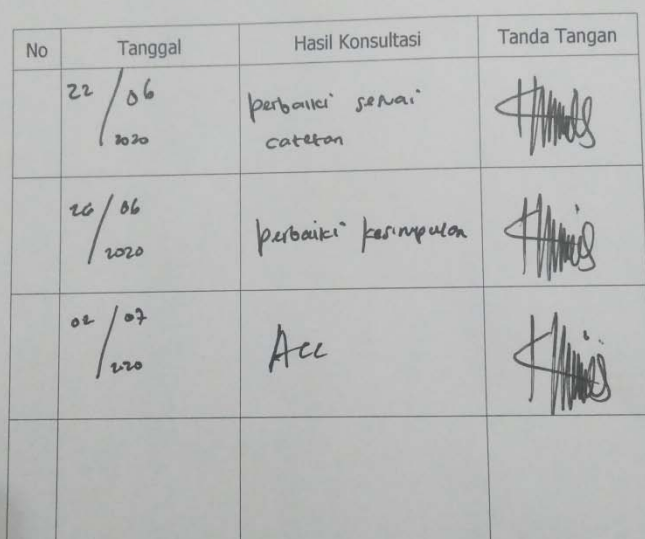 No Tanggal Hasil Konsultasi Tanda Tangan
22 / 06 2020 perbaiki sesuai
catatan
26 / 06 2020 perbaiki kesimpulan
02 / 07 2020 Acc